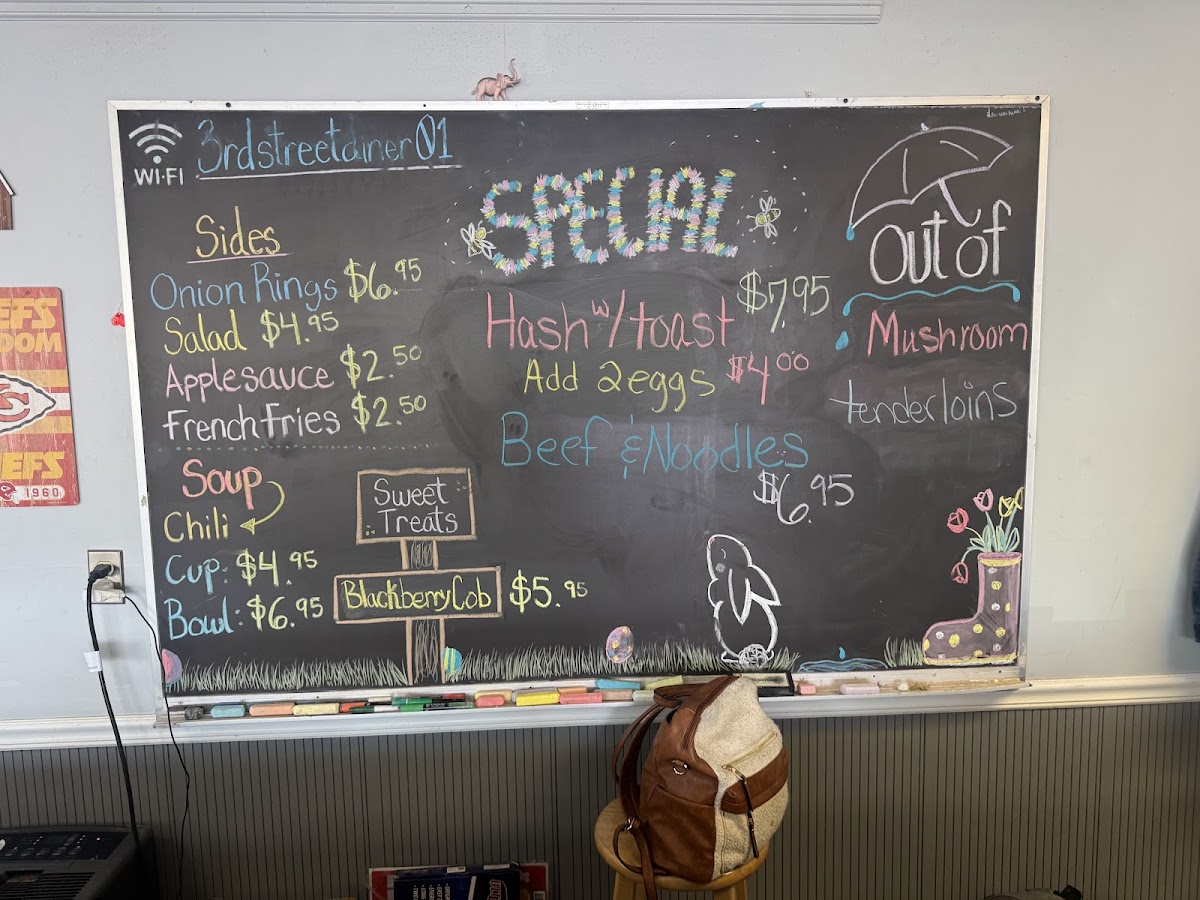 WI-FI
3rdstreetdiner01
Sides
Onion Rings $6.95
Salad $4.95
Applesauce $2.50
French Fries $2.50
Soup
Chili
Cup: $4.95
Bowl: $6.95
Sweet
Treats
Blackberry Cob $5.95
SPECIAL
Hash w/ toast $7.95
Add 2 eggs $4.00
Beef & Noodles
$6.95
Out of
Mushroom
tenderloins
EFS
DOM
EFS
1960